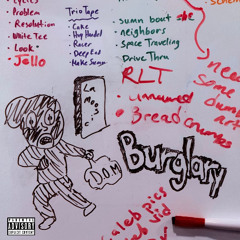 Cycles
Problem
Resolution
White Tee
Look
Jello
Trio Tape
Cake
Hug Hundred
Racer
Deep End
Make Sense
sumn bout she
neighbors
Space Traveling
Drive Thru
RLT
unnamed
Bread Crumbs
need
some
dumb
art
La Mosie
DOM
Burglary
caleb pics
caleb lid
PARENTAL
ADVISORY
EXPLICIT CONTENT